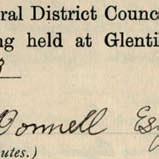 ral District Counc
ng held at Glenti
onnell Esq
utes.)